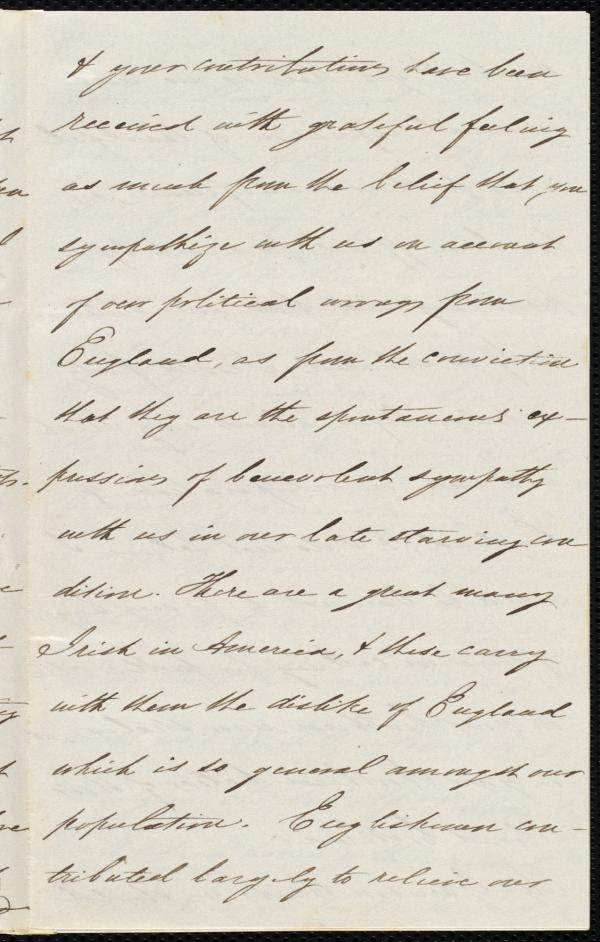 & your contributions have been
received with grateful feeling
as much from the belief that you
sympathize with us on account
of our political wrongs from
England, as from the conviction
that they are the spontaneous ex-
pressions of benevolent sympathy
with us in our late starving con
dition. There are a great many
Irish in America, & these carry
with them the dislike of England
which is so general amongst our
population. Englishmen con-
tributed largely to relieve our